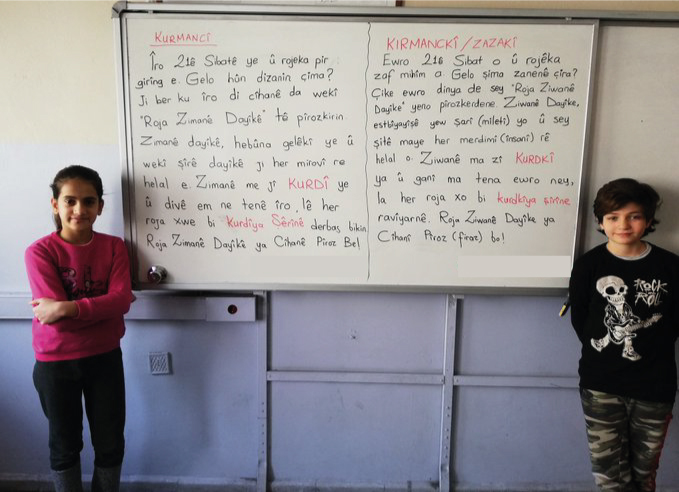 KURMANCÎ
Îro 21ê Sibatê ye û rojeka pir
giring e. Gelo hûn dizanin çima?
Ji ber ku îro di cihanê da wekî
"Roja Zimanê Dayîkê" tê pîrozkirin.
Zimanê dayîkê, hebûna gelêkî ye û
wekî şîrê dayîkê ji her mirovî re
helal e. Zimanê me jî KURDÎ ye
û divê em ne tenê îro, lê her
roja xwe bi Kurdîya Şêrînê derbas bikin.
Roja Zimanê Dayîkê ya Cîhanê Pîroz Be!
KIRMANCKÎ/ZAZAKÎ
Ewro 21ê Sibat o û rojêka
zaf mihîm a. Gelo şima zanenê çira?
Çike ewro dinya de sey "Roja Ziwanê
Dayîke" yeno pîrozkerdene. Ziwanê Dayîke,
estbîyayîşê yew şarî (miletî) yo û sey
şitê maye her merdimî (însanî) rê
helal o. Ziwanê ma zî KURDKÎ
ya û ganî ma tena ewro ney,
la her roja xo bi kurdkîya şîrine
ravîyarnê. Roja Ziwanê Dayîke ya
Cîhanî Pîroz (fîraz) bo!
ROCK
N
ROLL